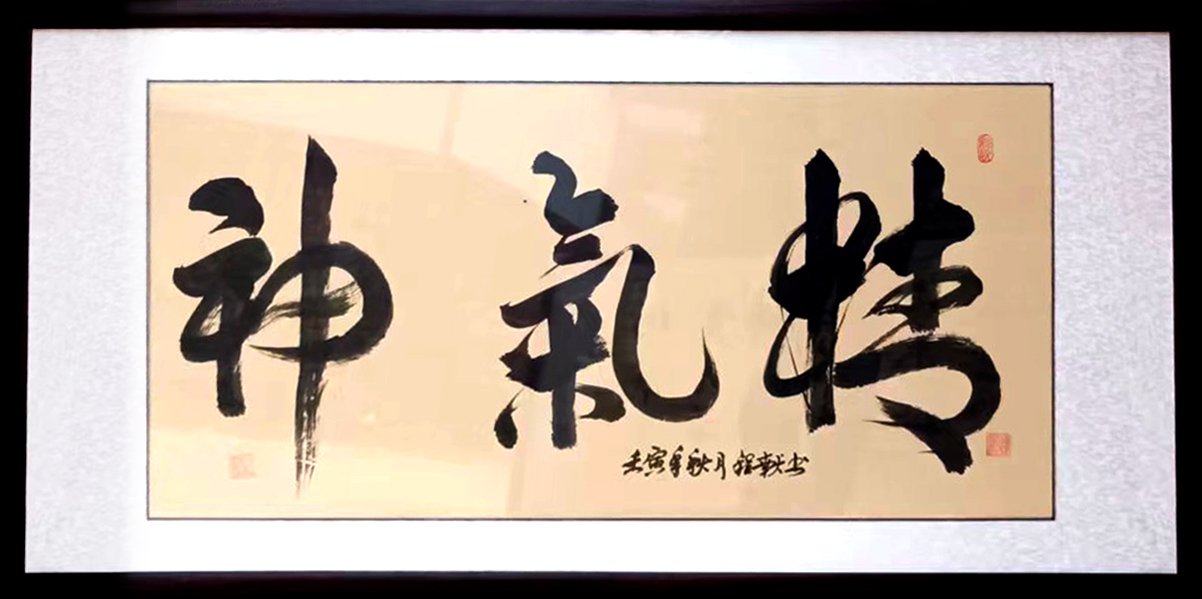 精氣神
壬寅年秋月程献书